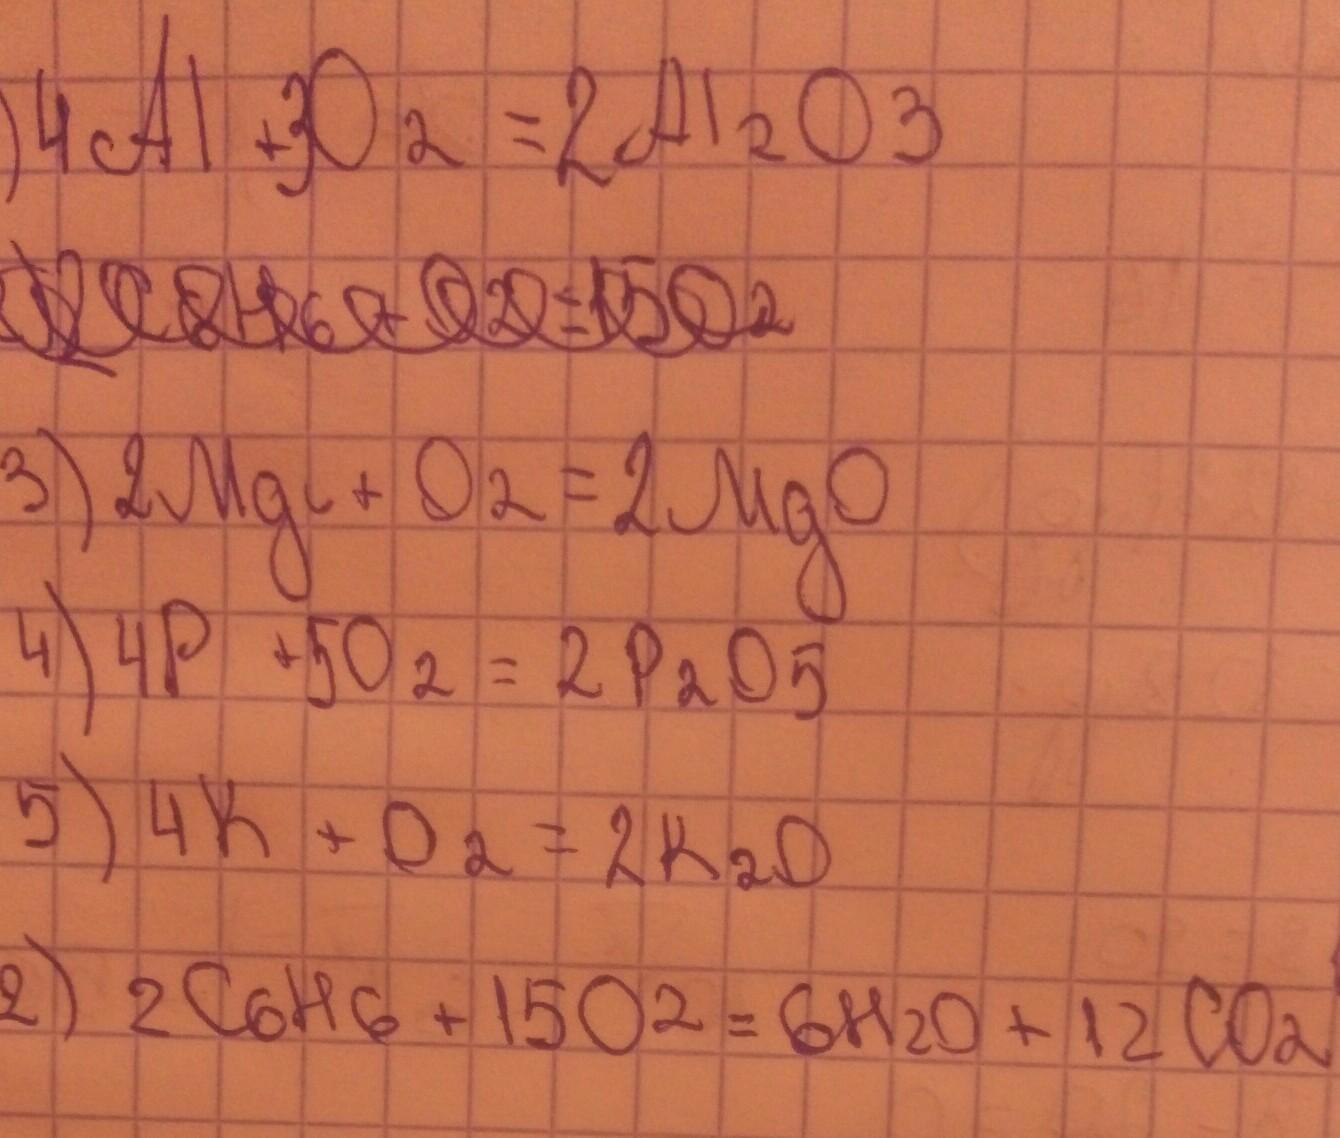 ) 4Al + 3O2 = 2Al2O3
3) 2Mg + O2 = 2MgO
4) 4P + 5O2 = 2P2O5
5) 4K + O2 = 2K2O
2) 2C6H6 + 15O2 = 6H2O + 12CO2